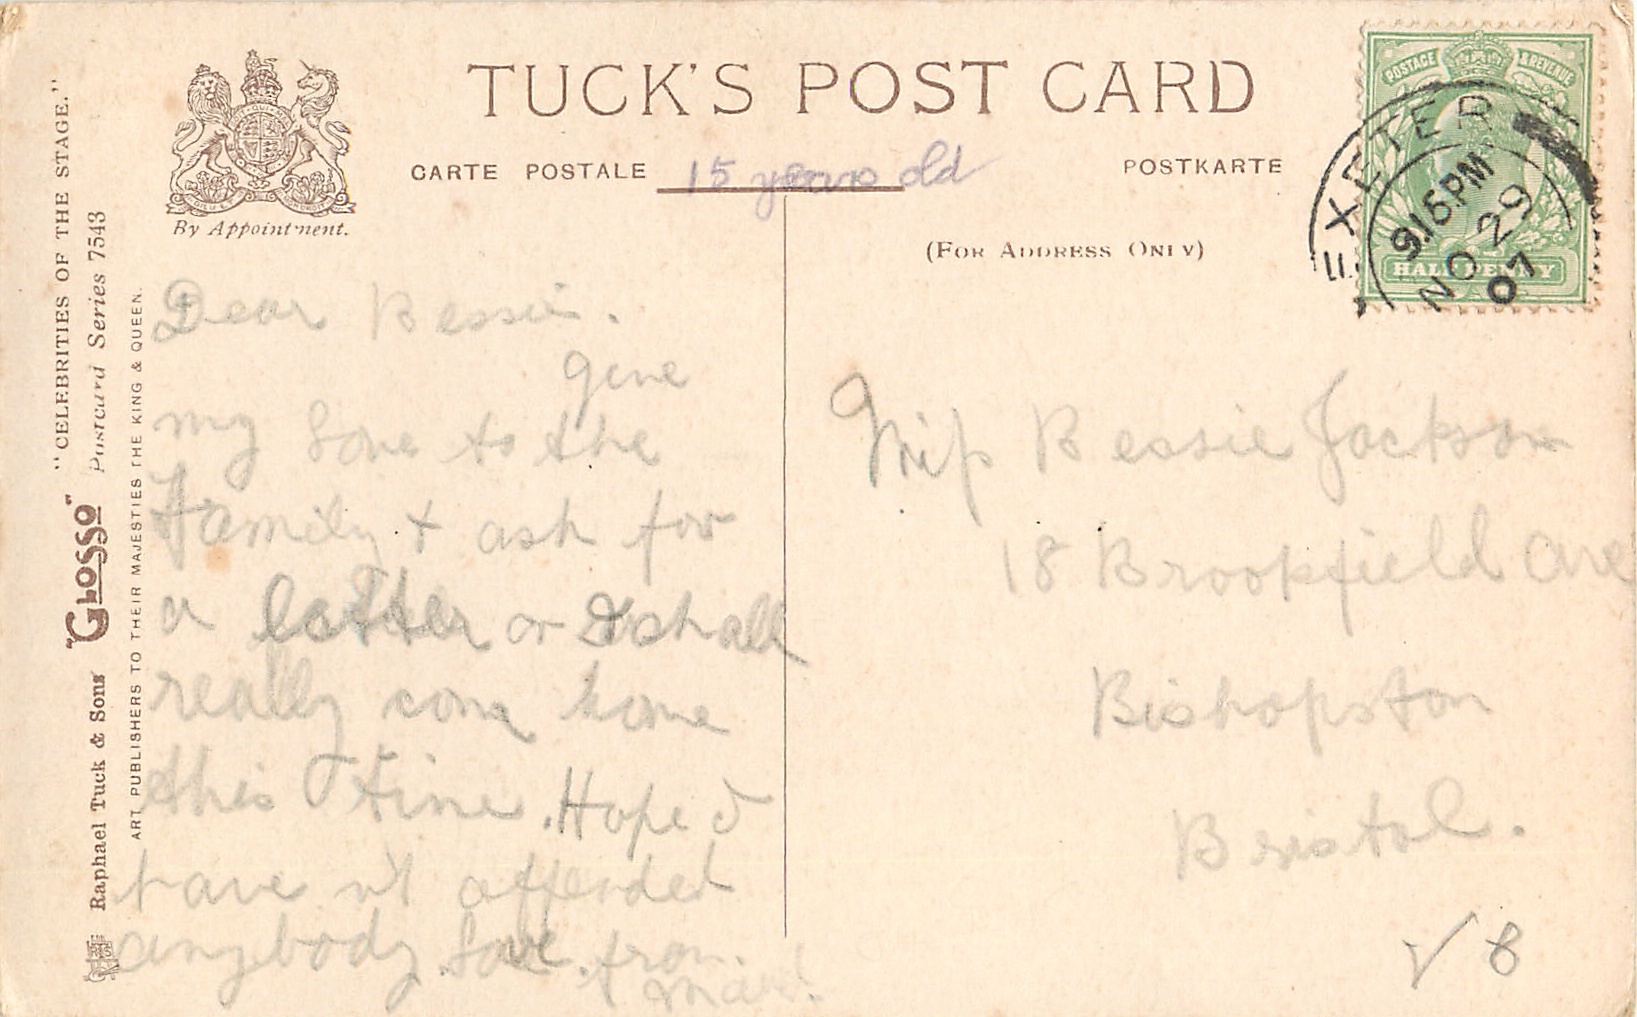 TUCK'S POST CARD
CARTE POSTALE
15 years old
POSTKARTE
(FOR ADDRESS ONLY)
By Appointment.
"CELEBRITIES OF THE STAGE."
Postcard Series 7543
Raphael Tuck & Sons' "GLOSSO"
ART PUBLISHERS TO THEIR MAJESTIES THE KING & QUEEN.
POSTAGE & REVENUE
HALFPENNY
EXETER
9.15PM
NO 29
07
Dear Bessie.
give
my love to the
Family & ask for
a letter or I shall
really come home
this time. Hope I
have n't offended
anybody. Love from.
Miss Bessie Jackson
18 Brookfield Ave
Bishopston
Bristol.